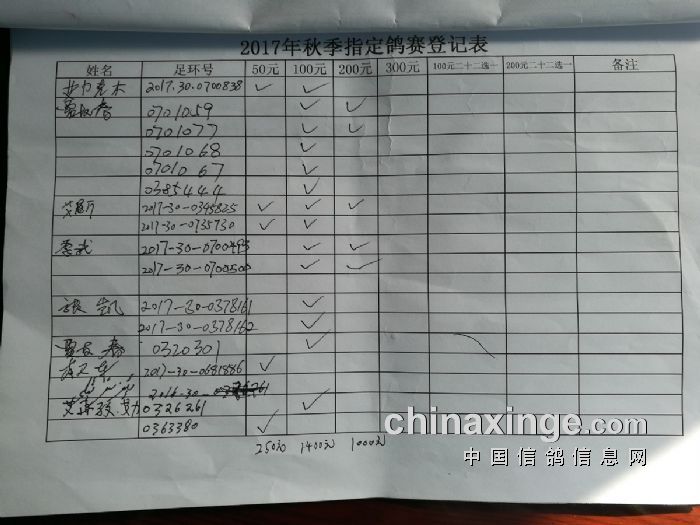 2017年秋季指定鸽赛登记表
姓名 足环号 50元 100元 200元 300元 100元二十二选一 200元二十二选一 备注
2017.30.0700838 ✓ ✓
0701059 ✓ ✓
0701077 ✓ ✓
0701068 ✓
0701067 ✓
0385444 ✓
2017-30-0345825 ✓ ✓ ✓
2017-30-0735730 ✓ ✓
李武 2017-30-0700493 ✓ ✓
2017-30-0700500 ✓ ✓
张凯 2017-30-0378161 ✓
2017-30-0378162 ✓
0320301 ✓
2017-30-0681886 ✓
2016-30-
0326261 ✓
0363380 ✓
250元 1400元 1000元
chinaxinge.com
中国信鸽信息网